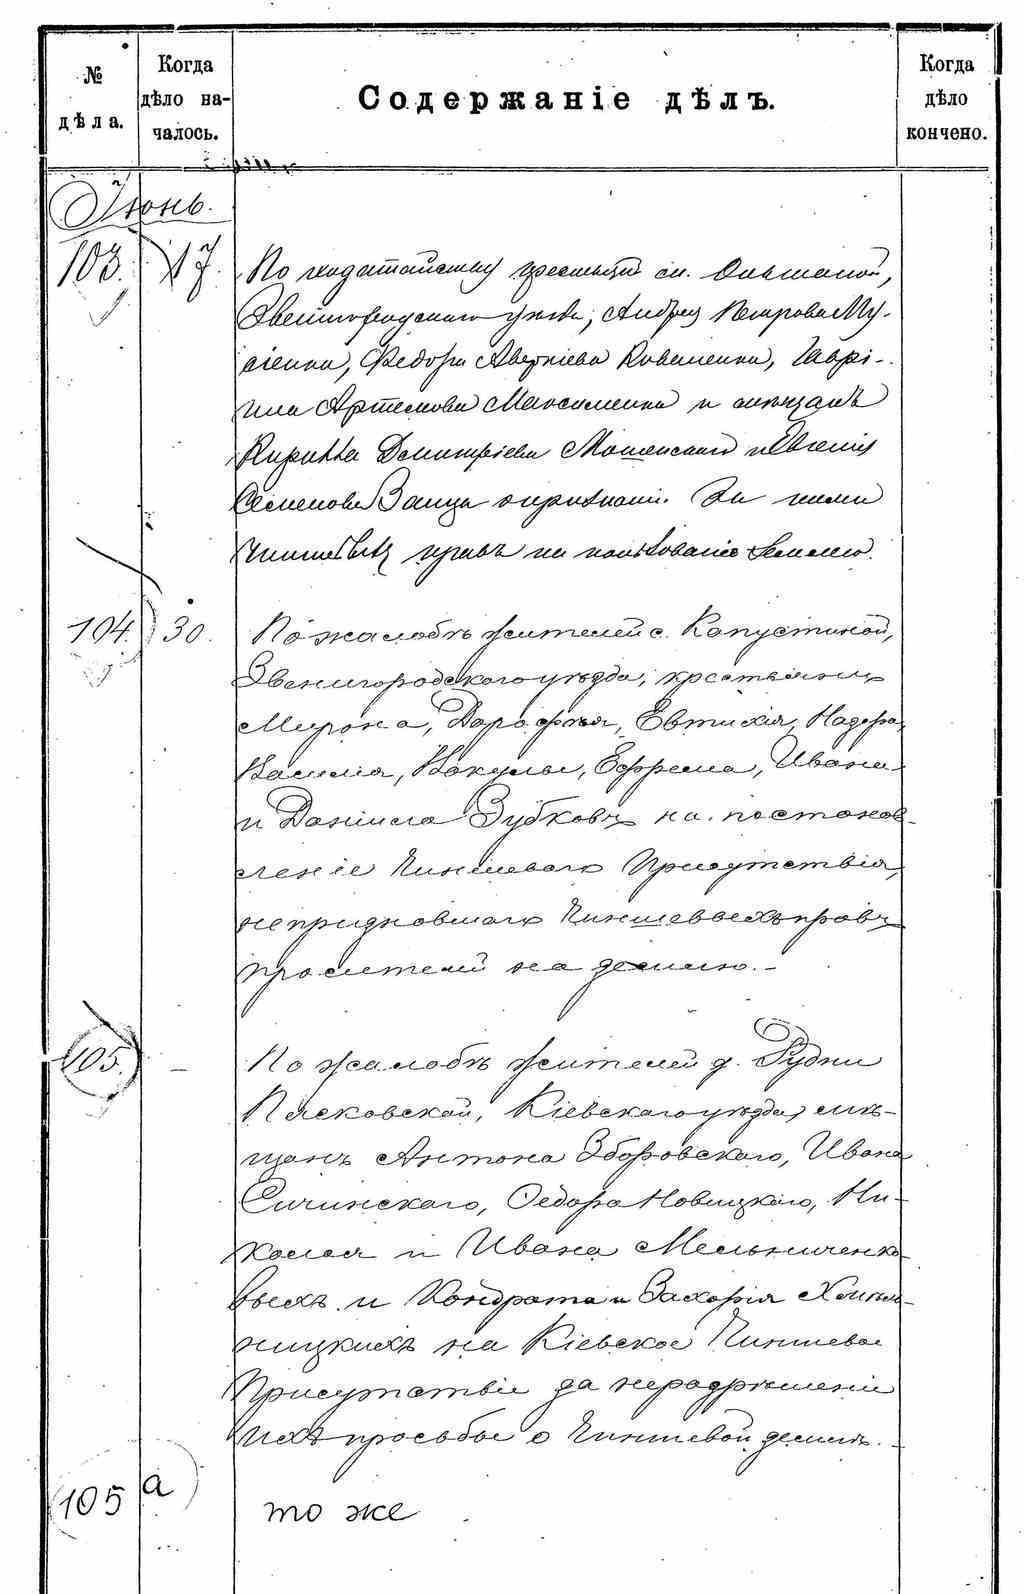 № дѣла.
Когда дѣло началось.
Содержаніе дѣлъ.
Когда дѣло кончено.
Іюнь.
103. 17. По ходатайству крестьянъ м. Ольшаной,
Звенигородскаго уѣзда, Андрея Петрова Му-
сіенка, Федора Аверкіева Коваленка, Гаврі-
ила Артемова Максименка и мѣщанъ
Кирилла Дмитріева Мошенскаго и Евгенія
Семенова Заица о признаніи за ними
чиншевыхъ правъ на пользованіе землею.
104. 30. По жалобѣ жителей с. Капустиной,
Звенигородского уѣзда, крестьянъ
Мирона, Дарофѣя, Евтихія,
Василія, Вакулы, Ефрема, Ивана
и Даніила Зубковъ на постанов-
леніе Чиншеваго Присутствія,
непризновшаго Чиншевыхъ правъ
просителей на землю.-
105. — По жалобѣ жителей д. Рудни
Пясковской, Кіевскаго уѣзда, мѣ-
щанъ Антона Зборовскаго, Ивана
Сичинскаго, Федора Новицкаго, Ни-
колая и Ивана Мельниченко-
выхъ и Кондрата и Захарія Хмѣль-
ницкихъ на Кіевское Чиншевое
Присутствіе за неразрѣшеніе
ихъ просьбы о Чиншевой землѣ.-
105 а то же